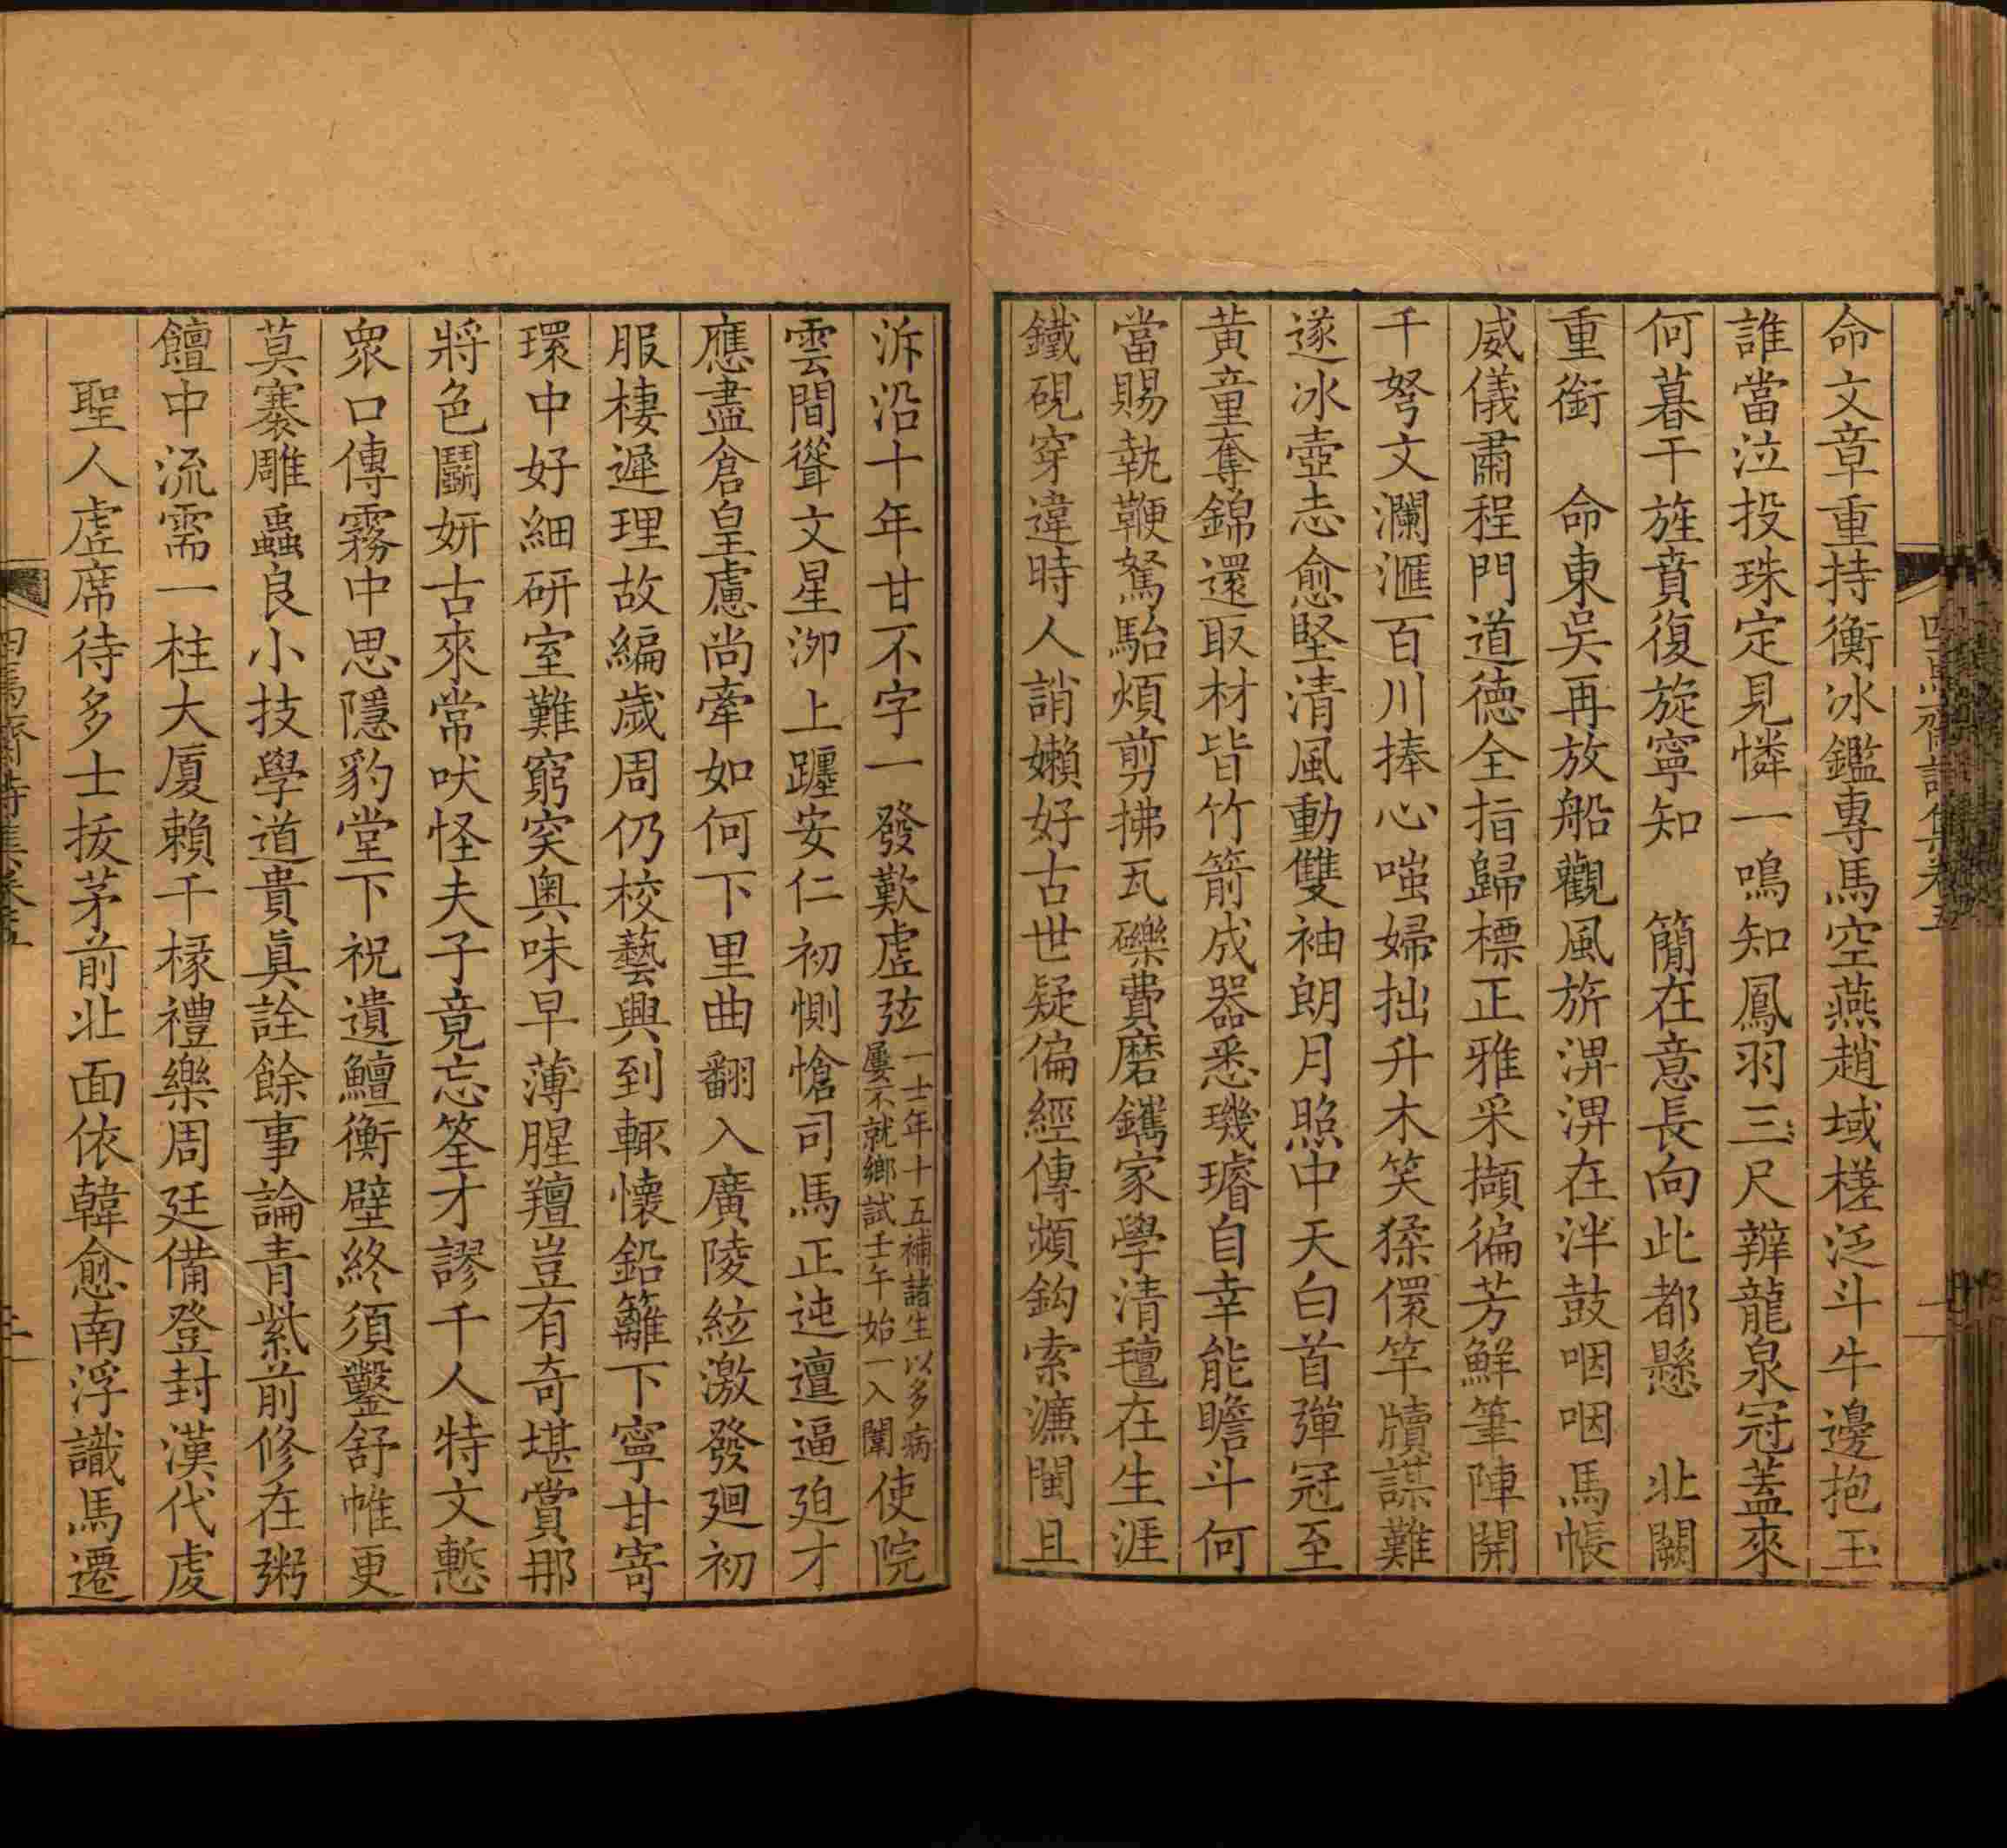 命文章重持衡冰鑑專馬空燕趙域槎泛斗牛邊抱玉
誰當泣投珠定見憐一鳴知鳳羽三尺辨龍泉冠蓋來
何暮干旌賁復旋寧知　簡在意長向此都懸　北闕
重銜　命東吳再放船觀風旂淠淠在泮鼓咽咽馬帳
威儀肅程門道德全指歸標正雅采擷徧芳鮮筆陣開
千弩文瀾滙百川捧心嗤婦拙升木笑猱儇竿牘謀難
遂冰壺志愈堅清風動雙袖朗月照中天白首彈冠至
黃童奪錦還取材皆竹箭成器悉璣璿自幸能瞻斗何
當賜執鞭駑駘煩剪拂瓦礫費磨鐫家學清氊在生涯
鐵硯穿違時人誚嬾好古世疑偏經傳頻鈎索濂閩且
泝沿十年甘不字一發歎虛弦
一士年十五補諸生以多病
屢不就鄉試壬午始一入闈
使院
雲間聳文星泖上躔安仁初惻愴司馬正迍邅逼廹才
應盡倉皇慮尚牽如何下里曲翻入廣陵絃激發廻初
服棲遲理故編歲周仍校藝興到輒懷鉛籬下寧甘寄
環中好細研室難窮突奧味早薄腥羶豈有奇堪賞那
將色鬭妍古來常吠怪夫子竟忘筌才謬千人特文慙
衆口傳霧中思隱豹堂下祝遺鱣衡壁終須鑿舒帷更
莫褰雕蟲良小技學道貴眞詮餘事論青紫前修在粥
饘中流需一柱大厦賴千椽禮樂周廷備登封漢代虔
聖人虛席待多士拔茅前北面依韓愈南浮識馬遷